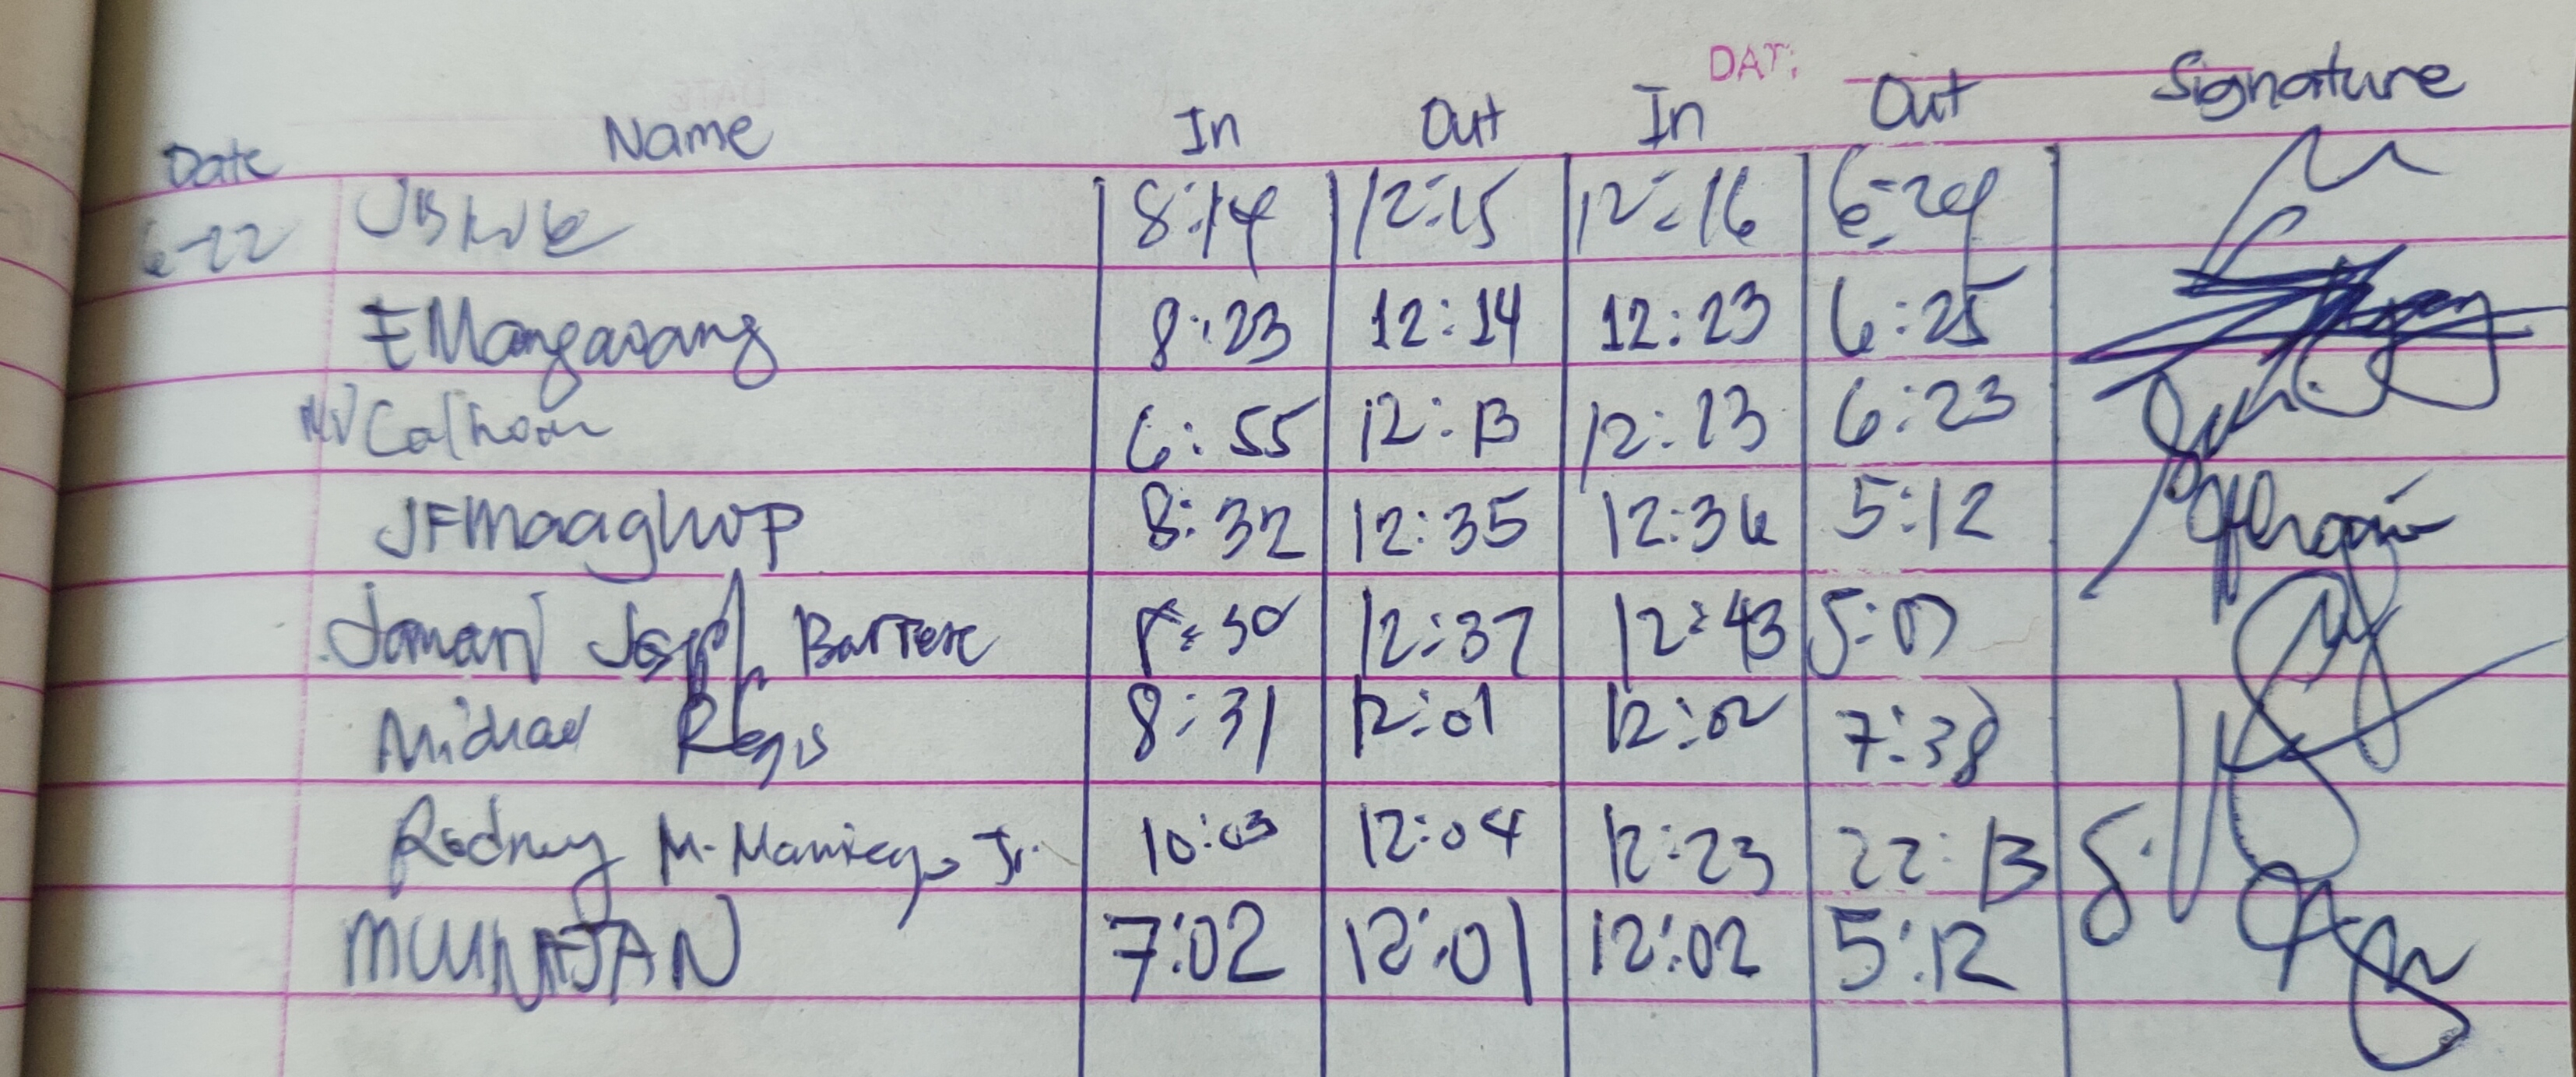 DATE
Date Name In Out In Out Signature
6-22 8:14 12:15 12:16 6:24
EMangaoang 8:23 12:14 12:23 6:25
NJ Calhoun 6:55 12:13 12:13 6:23
JFMaaghop 8:32 12:35 12:36 5:12
Jomari Joseph 8:30 12:37 12:43 5:03
Michael Regis 8:31 12:01 12:02 7:38
Rodney M. Jr. 10:03 12:04 12:23 22:13
7:02 12:01 12:02 5:12